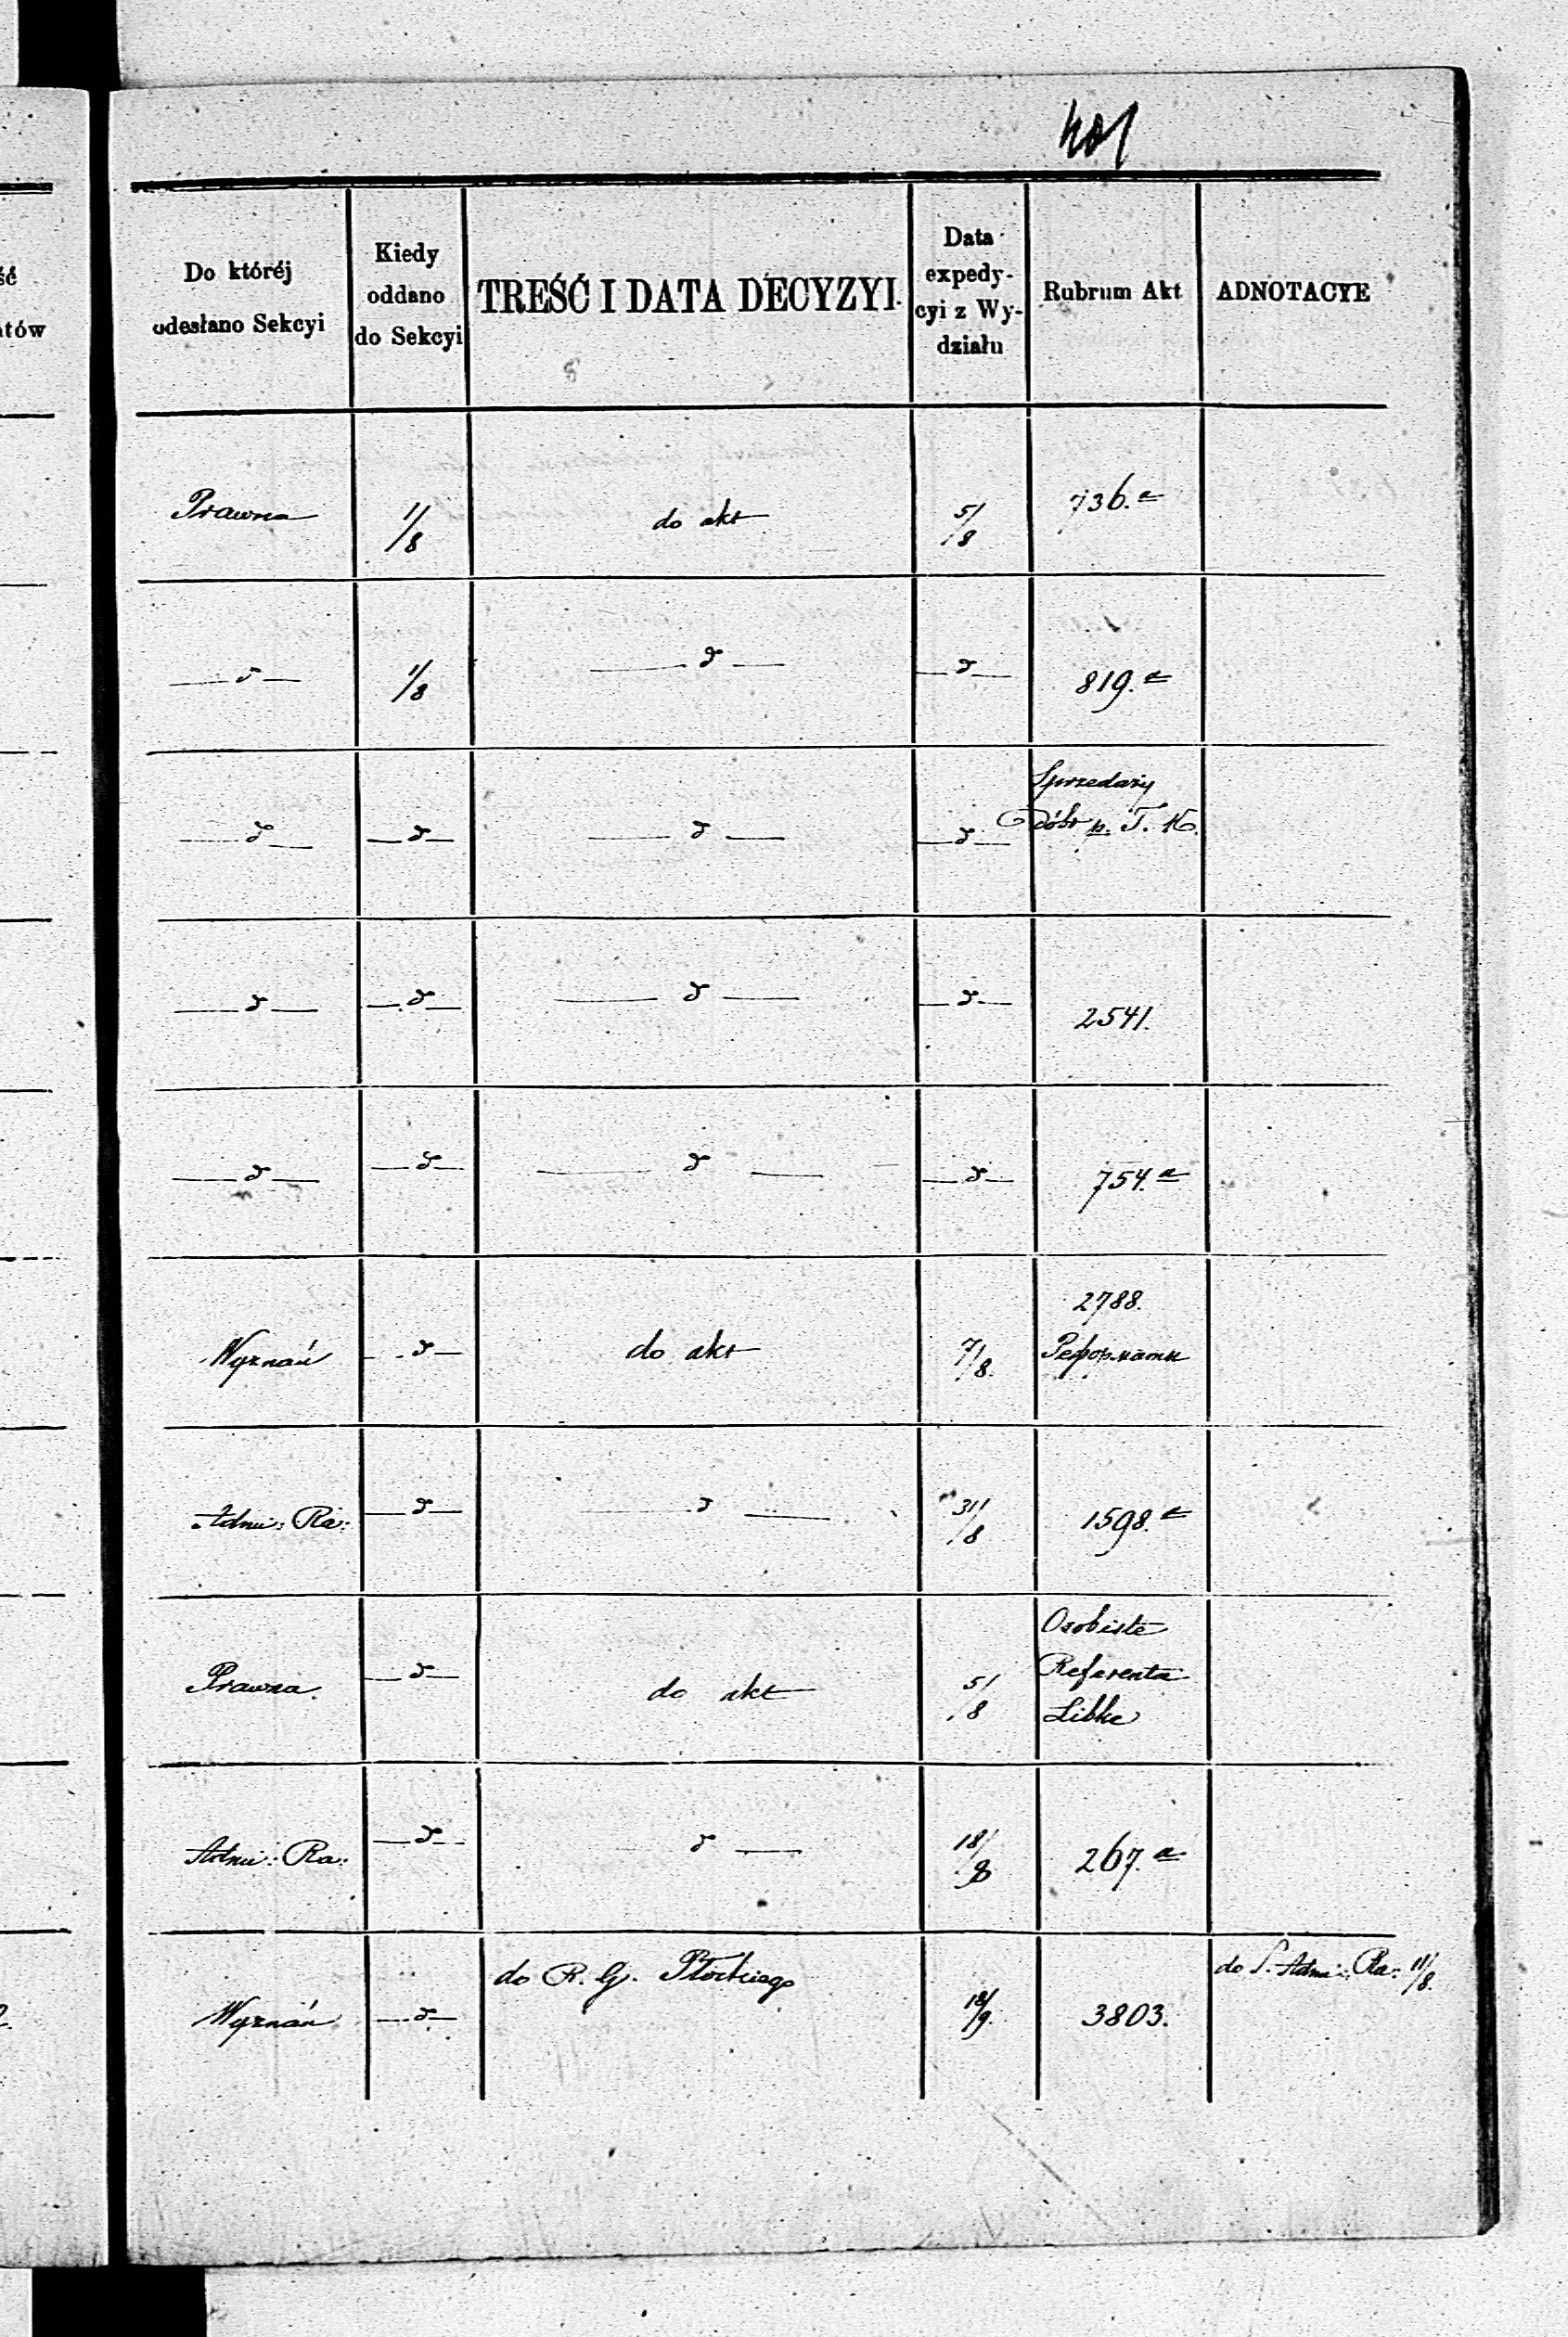 401
Do któréj
odesłano Sekcyi
Kiedy
oddano
do Sekcyi
TREŚĆ I DATA DECYZYI.
Data
expedy-
cyi z Wy-
działu
Rubrum Akt
ADNOTACYE
Prawna 1/8 do akt 5/8 736.a
— d — 1/8 — d — — d — 819.a
— d — — d — — d — — d — Sprzedaży
dóbr p. T. K.
— d — — d — — d — — d — 2541.
— d — — d — — d — — d — 754.a
Wyznań — d — do akt 7/8. 2788.
Реформаты
Adm: Ra: — d — — d — 31/8 1598.a
Prawna. — d — do akt 5/8 Osobiste
Referenta
Libke
Adm: Ra: — d — d — 18/8 267.a
Wyznań — d — do R. G. Płockiego 18/9. 3803. do S. Adm: Ra: 11/8.
ść
ntów